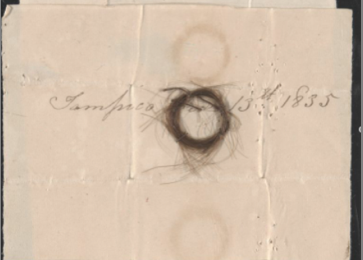 Tampico 13th 1835